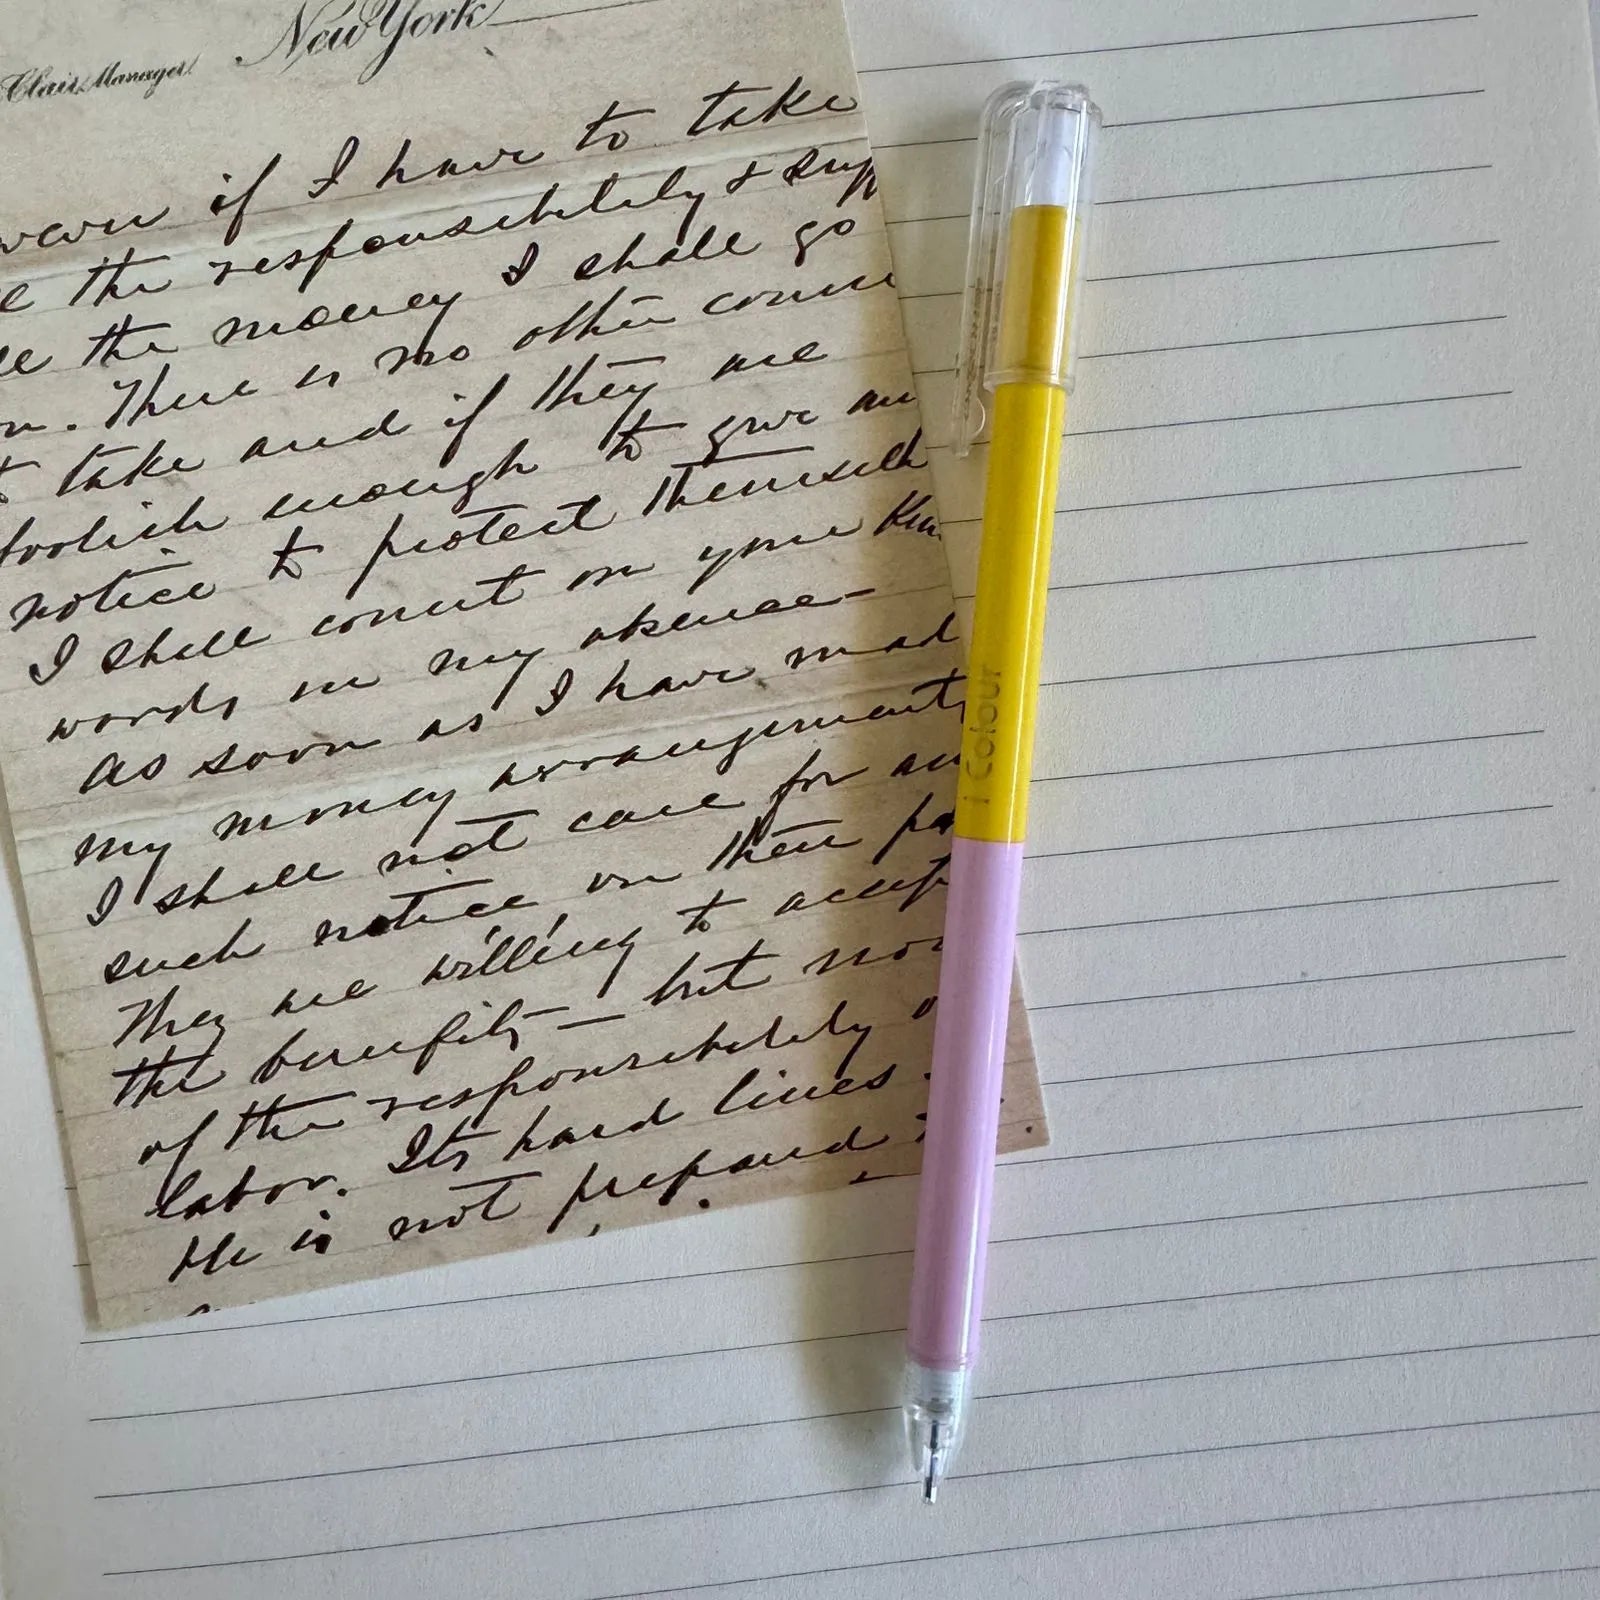 New York
Clair, Manager
if I have to take
the responsibility &
the money I shall go
There is no other
take and if they are
foolish enough to give
notice to protect
I shall count on your
words in my absence-
As soon as I have
my money arrangements
I shall not care for
such notice on their
They are willing to accept
the benefits — but
of the responsibility
labor. Its hard lines
He is not prepared
I Colour